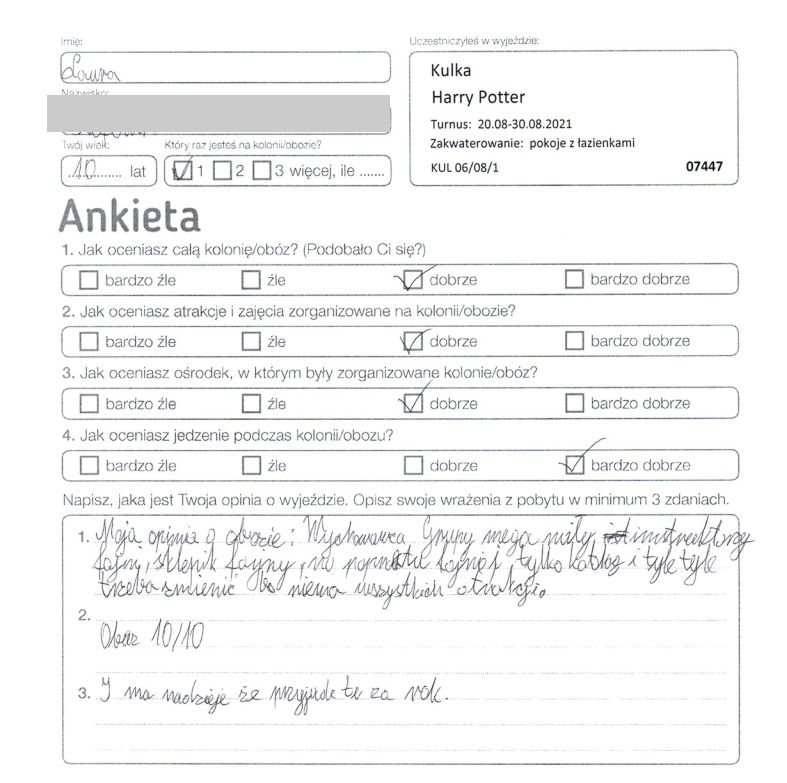 Imię:
Laura
Nazwisko:
Twój wiek:
10 lat
Który raz jesteś na kolonii/obozie?
1 2 3 więcej, ile .......
Uczestniczyłeś w wyjeździe:
Kulka
Harry Potter
Turnus: 20.08-30.08.2021
Zakwaterowanie: pokoje z łazienkami
KUL 06/08/1 07447
Ankieta
1. Jak oceniasz całą kolonię/obóz? (Podobało Ci się?)
bardzo źle źle dobrze bardzo dobrze
2. Jak oceniasz atrakcje i zajęcia zorganizowane na kolonii/obozie?
bardzo źle źle dobrze bardzo dobrze
3. Jak oceniasz ośrodek, w którym były zorganizowane kolonie/obóz?
bardzo źle źle dobrze bardzo dobrze
4. Jak oceniasz jedzenie podczas kolonii/obozu?
bardzo źle źle dobrze bardzo dobrze
Napisz, jaka jest Twoja opinia o wyjeździe. Opisz swoje wrażenia z pobytu w minimum 3 zdaniach.
1. Moja opinia o obozie: Wychowawca Grupy mega miły, instruektorzy
fajni, sklepik fajny, no poprostu fajnie i tylko katalog i tyle tyle
trzeba zmienić bo niema wszystkich atrakcji.
2.
Obóz 10/10
3. I ma nadzieje że przyjade tu za rok.